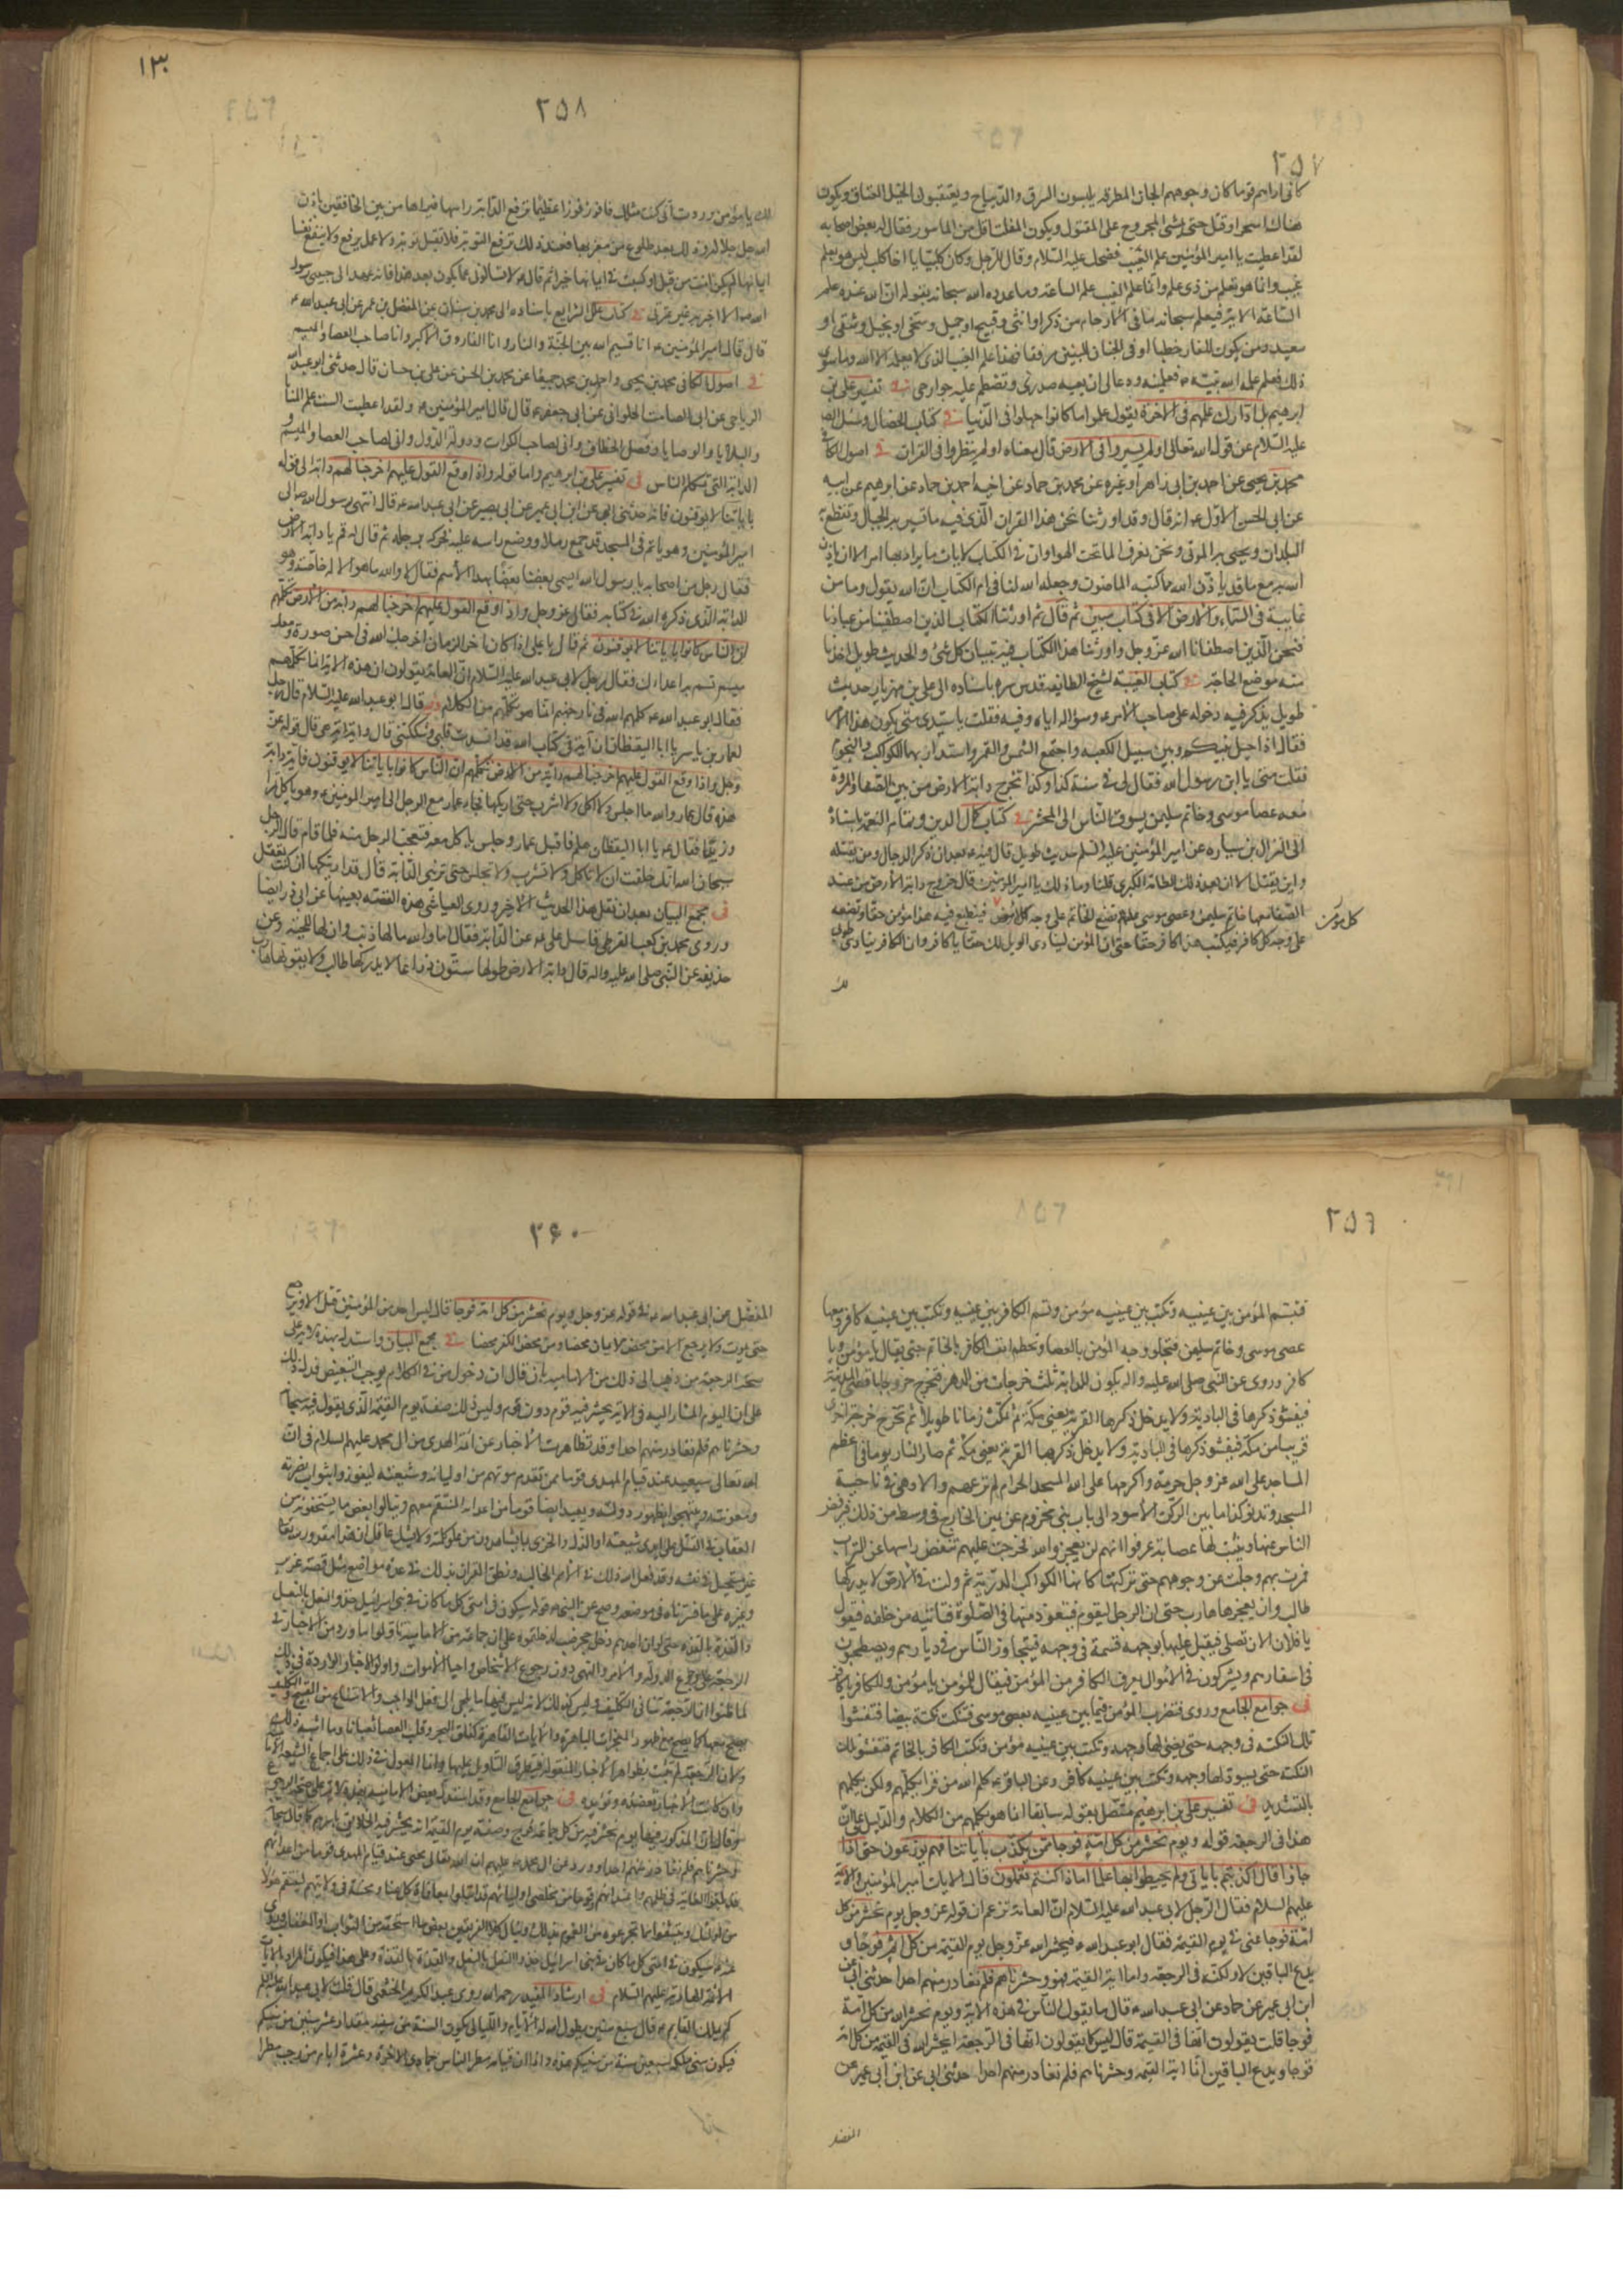 ٢٥٧
كانى اراهم قوما كان وجوههم المجان المطرقه يلبسون السرق والديباج ويعتقبون الخيل العتاق ويكون
هناك استحرار قتل حتى يمشى المجروح على المقتول ويكون المفلت اقل من الماسور فقال له بعض اصحابه
لقد اعطيت يا امير المؤمنين علم الغيب فضحك عليه السلام وقال للرجل وكان كلبيا يا اخا كلب ليس هو بعلم
غيب وانما هو تعلم من ذى علم وانما علم الغيب علم الساعة وما عدده الله سبحانه بقوله ان الله عنده علم
الساعة الاية فيعلم سبحانه ما فى الارحام من ذكر او انثى وقبيح او جميل وسخى او بخيل وشقى او
سعيد ومن يكون للنار حطبا او فى الجنان للنبيين مرافقا فهذا علم الغيب الذى لا يعلمه الا الله وما سوى
ذلك فعلم علمه الله نبيه فعلمنيه ودعا لى ان يعيه صدرى وتضطم عليه جوارحى فى تفسير على بن
ابرهيم بل ادارك علمهم فى الاخرة يقول علموا ما كانوا جهلوا فى الدنيا فى كتاب الخصال وسئل الصادق
عليه السلام عن قول الله تعالى اولم يسيروا فى الارض قال معناه اولم ينظروا فى القران فى اصول الكافى
محمد بن يحيى عن احمد بن ابى زاهر او غيره عن محمد بن حماد عن اخيه احمد بن حماد عن ابرهيم عن ابيه
عن ابى الحسن الاول انه قال وقد اورثنا نحن هذا القران الذى فيه ما تسير به الجبال وتقطع به
البلدان ويحيى به الموتى ونحن نعرف الماء تحت الهوا وان فى الكتاب لايات ما يراد بها امر الا ان ياذن
الله به مع ما قد ياذن الله مما كتبه الماضون وجعله الله لنا فى ام الكتاب ان الله يقول وما من
غايبة فى السماء والارض الا فى كتاب مبين ثم قال ثم اورثنا الكتاب الذين اصطفينا من عبادنا
فنحن الذين اصطفانا الله عز وجل واورثنا هذا الكتاب فيه تبيان كل شئ والحديث طويل اخذنا
منه موضع الحاجة فى كتاب الغيبة لشيخ الطايفة قدس سره باسناده الى على بن مهزيار حديث
طويل يذكر فيه دخوله على صاحب الامر وسؤاله اياه وفيه فقلت يا سيدى متى يكون هذا الامر
فقال اذا حيل بينكم وبين سبيل الكعبه واجتمع الشمس والقمر واستدار بهما الكواكب والنجوم
فقلت متى يا ابن رسول الله فقال لى فى سنة كذا وكذا تخرج دابة الارض من بين الصفا والمروة
معه عصا موسى وخاتم سليمن يسوق الناس الى المحشر فى كتاب كمال الدين وتمام النعمة باسناده
الى النزال بن سبره عن امير المؤمنين عليه السلم حديث طويل قال فيه بعد ان ذكر الدجال ومن يقتله
واين يقتل الا ان بعد ذلك الطامة الكبرى قلنا وما ذلك يا امير المؤمنين قال خروج دابة الارض من عند
الصفا معها خاتم سليمن وعصى موسى تضع الخاتم على وجه كل مؤمن فينطبع فيه هذا مؤمن حقا وتضعه
على وجه كل كافر فيكتب هذا كافر حقا حتى ان المؤمن لينادى الويل لك حقا يا كافر وان الكافر ينادى طوبى
كل مؤمن
لك
١٣٠
٢٥٨
لك يا مؤمن وددت انى كنت مثلك فافوز فوزا عظيما ثم ترفع الدابة راسها فيراها من بين الخافقين باذن
الله جل جلاله وذلك بعد طلوع الشمس من مغربها فعند ذلك ترفع التوبة فلا تقبل توبة ولا عمل يرفع ولا ينفع نفسا
ايمانها لم تكن امنت من قبل او كسبت فى ايمانها خيرا ثم قال لا تسالونى عما يكون بعد هذا فانه عهد الى حبيبى رسول
الله الا اخبر به غير عترتى فى كتاب علل الشرايع باسناده الى محمد بن سنان عن المفضل بن عمر عن ابى عبد الله
قال قال امير المؤمنين انا قسيم الله بين الجنة والنار وانا الفاروق الاكبر وانا صاحب العصا والميسم
فى اصول الكافى محمد بن يحيى واحمد بن محمد جميعا عن محمد بن الحسن عن على بن حسان قال حدثنى ابو عبد الله
الرياحى عن ابى الصامت الحلوانى عن ابى جعفر قال قال امير المؤمنين ولقد اعطيت الست علم المنايا
والبلايا والوصايا وفصل الخطاب وانى لصاحب الكرات ودولة الدول وانى لصاحب العصا والميسم و
الدابة التى تكلم الناس فى تفسير على بن ابرهيم واما قوله واذا وقع القول عليهم اخرجنا لهم دابة الى قوله
باياتنا لا يوقنون فانه حدثنى ابى عن ابن ابى عمير عن ابى بصير عن ابى عبد الله قال انتهى رسول الله الى
امير المؤمنين وهو نائم فى المسجد قد جمع رملا ووضع راسه عليه فحركه برجله ثم قال له قم يا دابة الارض
فقال رجل من اصحابه يا رسول الله ايسمى بعضنا بعضا بهذا الاسم فقال لا والله ما هو الا له خاصة وهو
الدابة الذى ذكره الله فى كتابه فقال عز وجل واذا وقع القول عليهم اخرجنا لهم دابة من الارض تكلمهم
ان الناس كانوا باياتنا لا يوقنون ثم قال يا على اذا كان اخر الزمان اخرجك الله فى احسن صورة ومعك
ميسم تسم به اعداءك فقال رجل لابى عبد الله عليه السلام ان العامة يقولون ان هذه الاية انما تكلمهم
فقال ابو عبد الله كلمهم الله فى نار جهنم انما هو تكلمهم من الكلام قال ابو عبد الله عليه السلام قال رجل
لعمار بن ياسر يا ابا اليقظان ان آية فى كتاب الله قد افسدت قلبى وشككتنى قال واية اية هى قال قوله عز
وجل واذا وقع القول عليهم اخرجنا لهم دابة من الارض تكلمهم ان الناس كانوا باياتنا لا يوقنون فاية دابة
هذه قال عمار والله ما اجلس ولا اكل ولا اشرب حتى اريكها فجاء عمار مع الرجل الى امير المؤمنين وهو ياكل تمرا
وزبدا فقال يا ابا اليقظان هلم فاقبل عمار وجلس ياكل معه فتعجب الرجل منه فلما قام قال الرجل
سبحان الله انك حلفت ان لا تاكل ولا تشرب ولا تجلس حتى ترينى الدابة قال قد اريتكها ان كنت تعقل
فى مجمع البيان بعد ان نقل هذا الحديث الاخير وروى العياشى هذه القصة بعينها عن ابى ذر ايضا
وروى محمد بن كعب القرظى قال سئل على عن الدابة فقال اما والله ما لها ذنب وان لها للحية وعن
حذيفه عن النبى صلى الله عليه واله قال دابة الارض طولها ستون ذراعا لا يدركها طالب ولا يفوتها هارب
٢٥٩
فتسم المؤمن بين عينيه وتكتب بين عينيه مؤمن وتسم الكافر بين عينيه وتكتب بين عينيه كافر ومعها
عصى موسى وخاتم سليمن فتجلو وجه المؤمن بالعصا وتحطم انف الكافر بالخاتم حتى يقال يا مؤمن ويا
كافر وروى عن النبى صلى الله عليه واله يكون للدابة ثلث خرجات من الدهر فتخرج خروجا باقصى المدينة
فيفشو ذكرها فى البادية ولا يدخل ذكرها القرية يعنى مكة ثم تمكث زمانا طويلا ثم تخرج خرجة اخرى
قريبا من مكة فيفشو ذكرها فى البادية ولا يدخل ذكرها القرية يعنى مكة ثم صار الناس يوما فى اعظم
المساجد على الله عز وجل حرمة واكرمها على الله المسجد الحرام لم ترعهم الا وهى فى ناحية
المسجد وتدنو كذا ما بين الركن الاسود الى باب بنى مخزوم عن يمين الخارج فى وسط من ذلك فيرفض
الناس عنها وتثبت لها عصابة عرفوا انهم لن يعجزوا الله فخرجت عليهم تنفض راسها عن التراب
فمرت بهم وجلت عن وجوههم حتى تركتها كانها الكواكب الدرية ثم ولت فى الارض لا يدركها
طالب ولا يعجزها هارب حتى ان الرجل ليقوم فيتعوذ منها فى الصلوة فتاتيه من خلفه فتقول
يا فلان الان تصلى فيقبل عليها بوجهه فتسمه فى وجهه فيتجاور الناس فى ديارهم ويصطحبون
فى اسفارهم ويشتركون فى الاموال يعرف الكافر من المؤمن فيقال للمؤمن يا مؤمن وللكافر يا كافر
فى جوامع الجامع وروى فتضرب المؤمن فيما بين عينيه بعصى موسى فتنكت نكتة بيضا فتفشوا
تلك النكتة فى وجهه حتى يضئ لها وجهه وتكتب بين عينيه مؤمن وتنكت الكافر بالخاتم فتفشو تلك
النكتة حتى يسود لها وجهه وتكتب بين عينيه كافر وعن الباقر كلم الله من قرا تكلمهم ولكن تكلمهم
بالتشديد فى تفسير على بن ابرهيم متصل بقوله سابقا انما هو تكلمهم من الكلام والدليل على ان
هذا فى الرجعة قوله ويوم نحشر من كل امة فوجا ممن يكذب باياتنا فهم يوزعون حتى اذا
جاؤا قال اكذبتم باياتى ولم تحيطوا بها علما اما ذا كنتم تعملون قال الايات امير المؤمنين والائمة
عليهم السلام فقال الرجل لابى عبد الله عليه السلام ان العامة تزعم ان قوله عز وجل يوم نحشر من كل
امة فوجا عنى فى يوم القيمة فقال ابو عبد الله فيحشر الله عز وجل يوم القيمة من كل امة فوجا و
يدع الباقين لا ولكنه فى الرجعة واما اية القيمة فهو وحشرناهم فلم نغادر منهم احدا حدثنى ابى عن
ابن ابى عمير عن حماد عن ابى عبد الله قال ما يقول الناس فى هذه الاية ويوم نحشر من كل امة
فوجا قلت يقولون انها فى القيمة قال ليس كما يقولون انها فى الرجعة ايحشر الله فى القيمة من كل امة
فوجا ويدع الباقين انما اية القيمة وحشرناهم فلم نغادر منهم احدا حدثنى ابى عن ابن ابى عمير عن
المفضل
٢۶٠
المفضل عن ابى عبد الله فى قوله عز وجل ويوم نحشر من كل امة فوجا قال ليس احد من المؤمنين قتل الا ويرجع
حتى يموت ولا يرجع الا من محض الايمان محضا ومن محض الكفر محضا فى مجمع البيان واستدل بهذه الاية على
صحة الرجعة من ذهب الى ذلك من الامامية بان قال ان دخول من فى الكلام يوجب التبعيض فدل ذلك
على ان اليوم المشار اليه فى الاية يحشر فيه قوم دون قوم وليس ذلك صفة يوم القيمة الذى يقول فيه سبحانه
وحشرناهم فلم نغادر منهم احدا وقد تظاهرت الاخبار عن ائمة الهدى من ال محمد عليهم السلام فى ان
الله تعالى سيعيد عند قيام المهدى قوما ممن تقدم موتهم من اوليائه وشيعته ليفوزوا بثواب نصرته
ومعونته ويبتهجوا بظهور دولته ويعيد ايضا قوما من اعدائه لينتقم منهم وينالوا بعض ما يستحقونه من
العقاب فى القتل على ايدى شيعته او الذل والخزى بما يشاهدون من علو كلمته ولا يشك عاقل ان هذا مقدور لله تعالى
غير مستحيل فى نفسه وقد فعل الله ذلك فى الامم الخالية ونطق القران بذلك فى عدة مواضع مثل قصة عزير
وغيره على ما فسرناه فى موضعه وصح عن النبى قوله سيكون فى امتى كل ما كان فى بنى اسرائيل حذو النعل بالنعل
والقذة بالقذة حتى لو ان احدهم دخل جحر ضب لدخلتموه على ان جماعة من الامامية تاولوا ما ورد من الاخبار فى
الرجعة على رجوع الدولة والامر والنهى دون رجوع الاشخاص واحيا الاموات واولوا الاخبار الواردة فى ذلك
لما ظنوا ان الرجعة تنافى التكليف وليس كذلك لانه ليس فيها ما يلجئ الى فعل الواجب والامتناع من القبيح والتكليف
يصح معها كما يصح مع ظهور المعجزات الباهرة والايات القاهرة كفلق البحر وقلب العصا ثعبانا وما اشبه ذلك
ولان الرجعة لم تثبت بظواهر الاخبار المنقولة فيتطرق التاويل عليها وانما المعول فى ذلك على اجماع الشيعة الامامية
وان كانت الاخبار تعضده وتؤيده فى جوامع الجامع وقد استدل بعض الامامية بهذه الاية على صحة الرجعة
وقال ان المذكور فيها يوم نحشر فيه من كل جماعة فوج وصفة يوم القيمة انه يحشر فيه الخلايق باسرهم كما قال سبحانه
وحشرناهم فلم نغادر منهم احدا وورد عن ال محمد عليهم ان الله تعالى يحيى عند قيام المهدى قوما من اعدائهم
الائمة الهادية عليهم السلام فى ارشاد المفيد رحمه الله روى عبد الكريم الخثعمى قال قلت لابى عبد الله عليه السلم
كم يملك القايم قال سبع سنين يطول الله له الايام والليالى حتى تكون السنة من سنيه مقدار عشر سنين من سنيكم
فيكون سنى ملكه سبعين سنة من سنيكم هذه واذا ان قيامه مطر الناس جمادى الاخرة وعشرة ايام من رجب مطرا